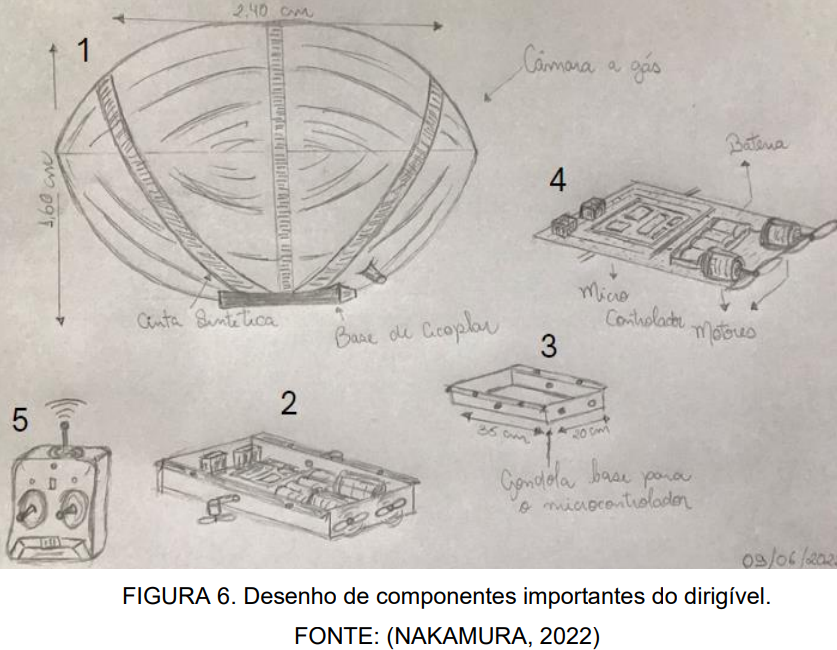 2,40 cm
1
Câmara a gás
1,60 cm
4
Bateria
Cinta Sintética
Base de Acoplar
Micro
Controlador
Motores
3
35 cm
20 cm
Gondola base para
o microcontrolador
5
2
09/06/202
FIGURA 6. Desenho de componentes importantes do dirigível.
FONTE: (NAKAMURA, 2022)